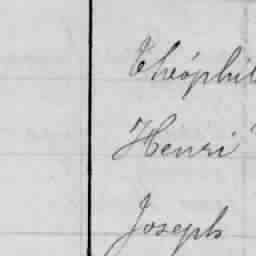 Théophil
Henri
Joseph